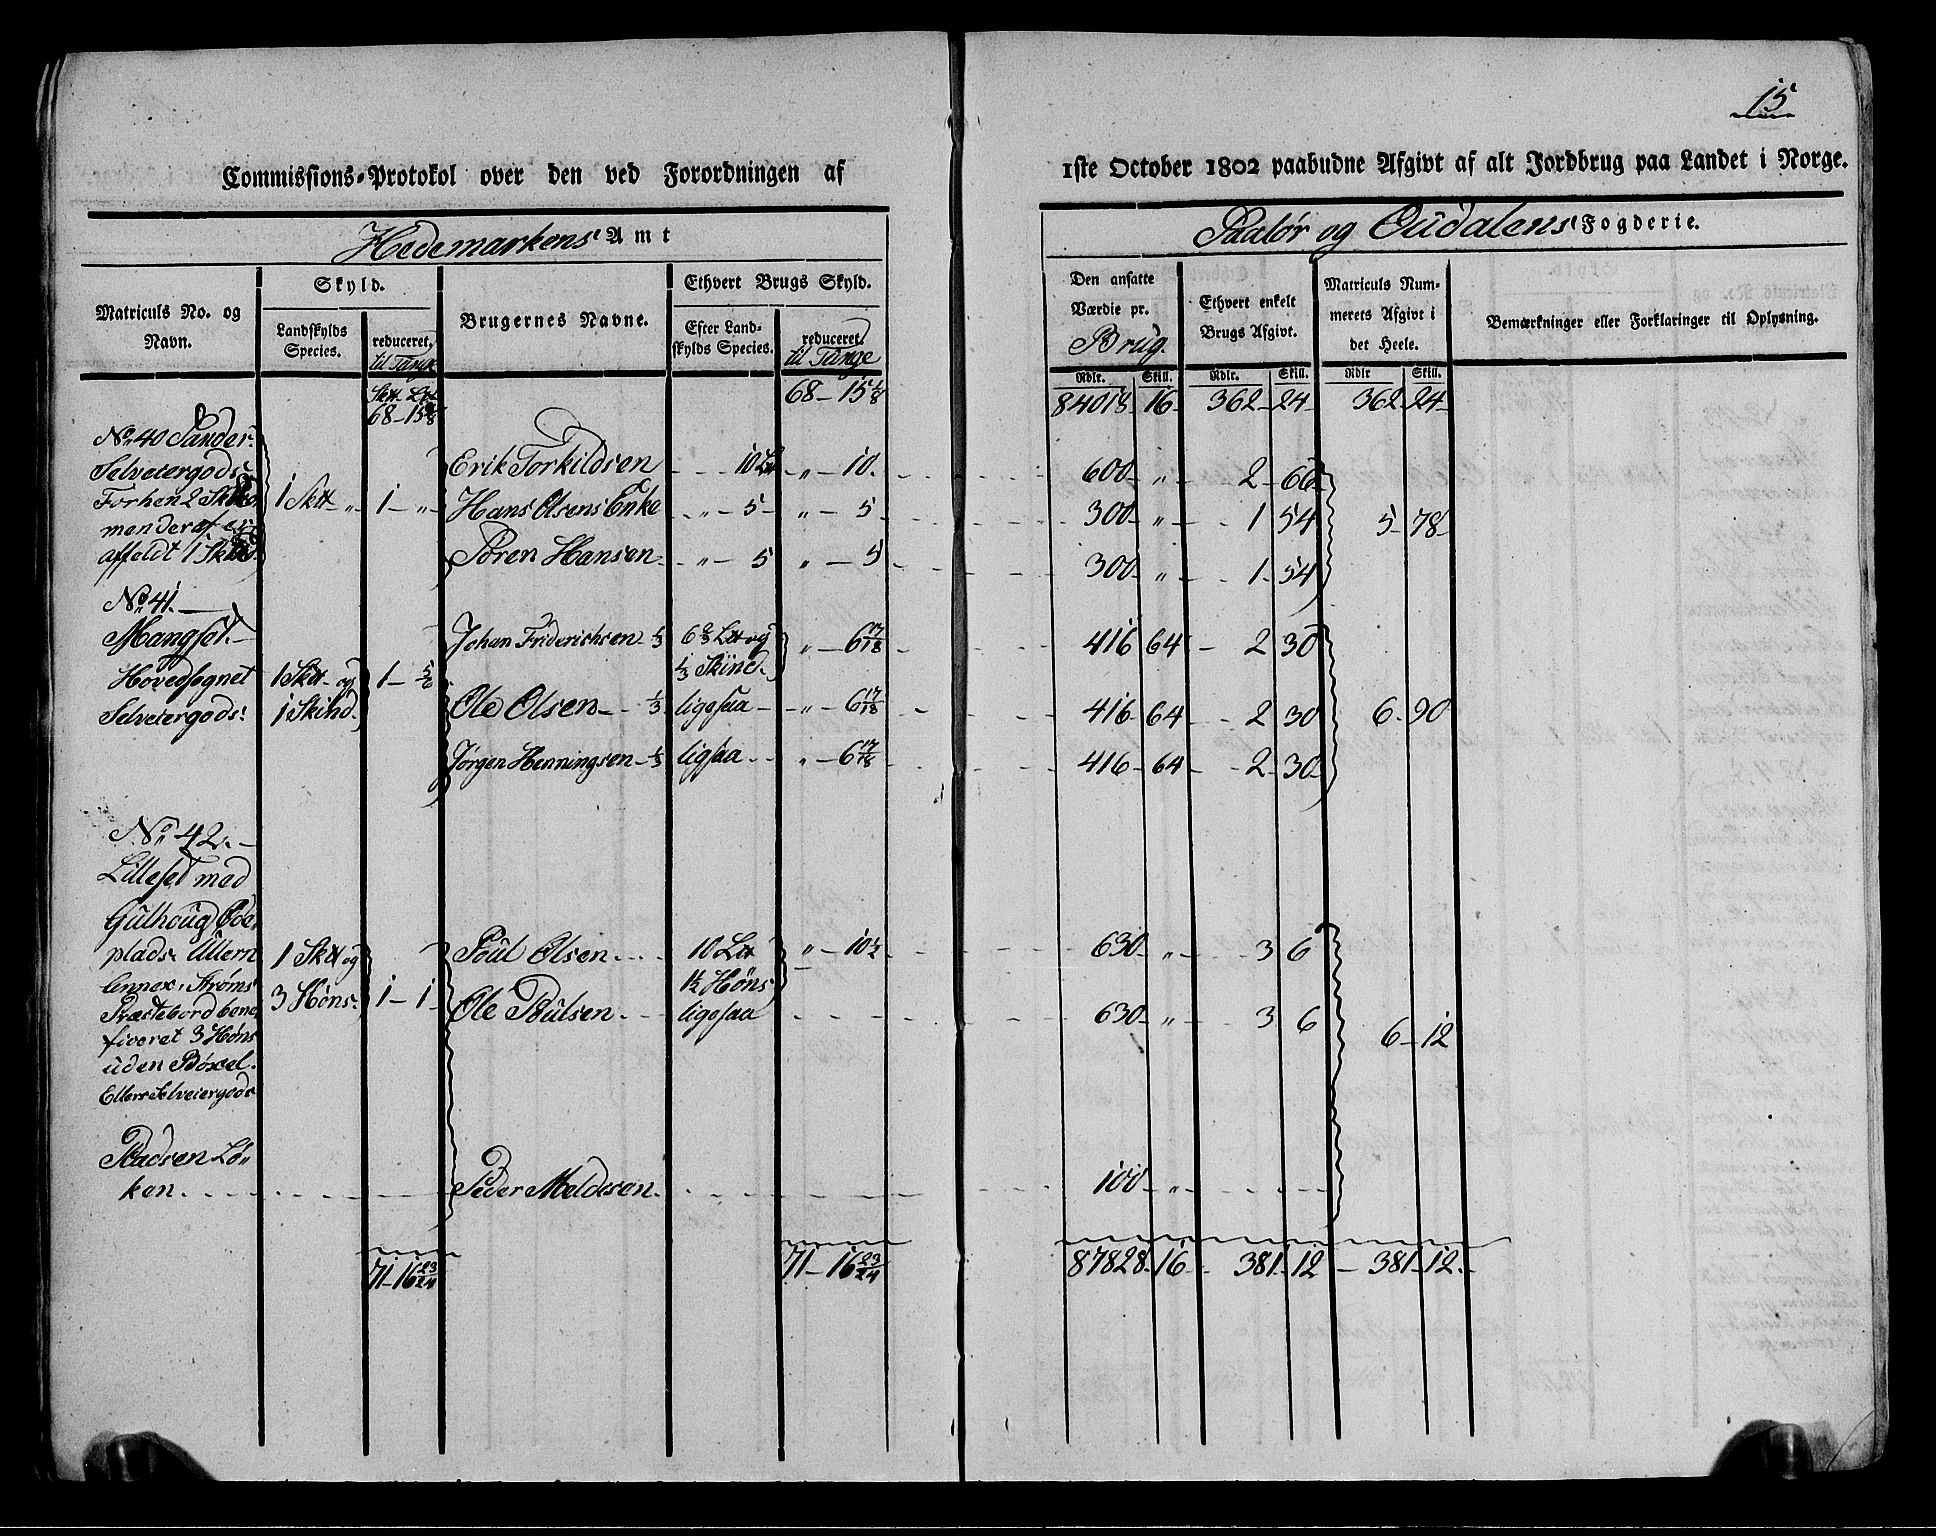 15
Commissions-Protokol over den ved Forordningen af 1ste October 1802 paabudne Afgivt af alt Jordbrug paa Landet i Norge.
Hedemarkens Amt
Soelør og Oudalens Fogderie.
Matriculs No. og Navn.
Skyld.
Landskylds Species.
reduceret til Tunge
Brugernes Navne.
Ethvert Brugs Skyld.
Efter Landskylds Species.
reduceret til Tunge
Den ansatte Værdie pr. Brug.
Ethvert enkelt Brugs Afgivt.
Matriculs Nummerets Afgivt i det Heele.
Bemærkninger eller Forklaringer til Oplysning.
Rdlr. Skill. Rdlr. Skill. Rdlr Skill.
68 - 15 1/8 84018 - 16 - 362 - 24 - 362 - 24 -
68 - 15 1/8
No. 40 Sander
Selveiergods
Erik Torkildsen - - - 10 L „ - 10. 600 - „ - 2 - 66
Forhen 2 Sk
1 Sktt „ 1 - „ Hans Olsens Enke „ - 5 - „ - 5 - 300 - „ - 1 54 5 - 78
men deraf er
affaldt 1 Sk
Søren Hansen - „ - 5 „ - 5 300 - „ - 1 - 54
No. 41.
Mangset.
Johan Friderichsen - 1/3 6 2/3 L og 1/3 Skind. „ - 6 17/18 416 64 - 2 30
Hovedsognet
Selveiergods:
1 Sktt og 1 Skind. 1 - 5/6
Ole Olsen - 1/3 ligesaa - „ - 6 17/18 416 - 64 - 2 30 6 - 90
Jørgen Henningsen - 1/3 ligesaa - - „ - 6 17/18 416 - 64 - 2 - 30
No. 42.
Lilleset med
Gulhoug Øde
plads Ullern
1 Sktt og 3 Høns. 1 - 1
Poul Olsen 10 L 1½ Høns „ - 10 1/2 630 - „ - 3 6
Annex, Strøms
Præstebord bene
Ole Poulsen - ligesaa 630 - „ - 3 6 6 - 12
ficeret 3 Høns
uden Bøxel.
Ellers Selveiergods
Pladsen Lø
ken
Peder Meldesen. 100 - „
71 - 16 23/24 71 - 16 23/24 87828 - 16 - 381 - 12 - 381 - 12.